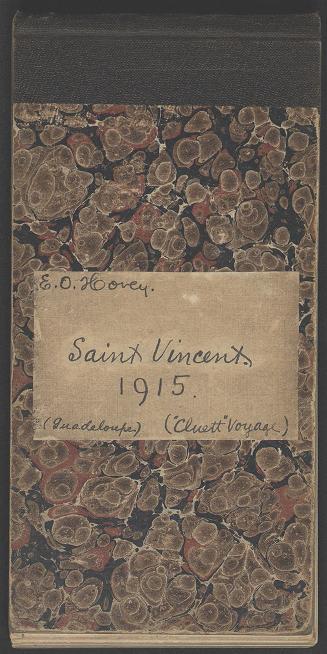 E. O. Hovey.
Saint Vincent.
1915.
(Guadeloupe) ("Cluett" Voyage)